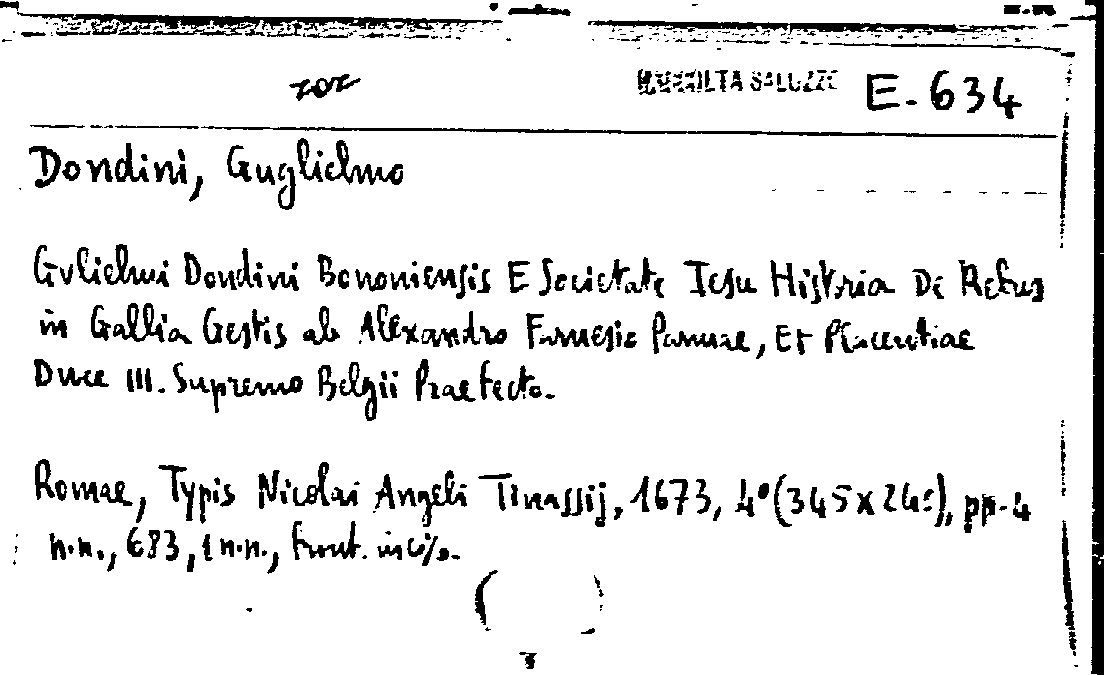 ror RACCOLTA SALUZZO E.634
Dondini, Guglielmo
Gvlielmi Dondini Bononiensis E Societate Iesu Historia De Rebus
in Gallia Gestis ab Alexandro Farnesio Parmae, Et Placentiae
Duce III. Supremo Belgii Praefecto.
Romae, Typis Nicolai Angeli Tinassij, 1673, 4° (345x240), pp. 4
n.n., 683, 1 n.n., front. inciso.